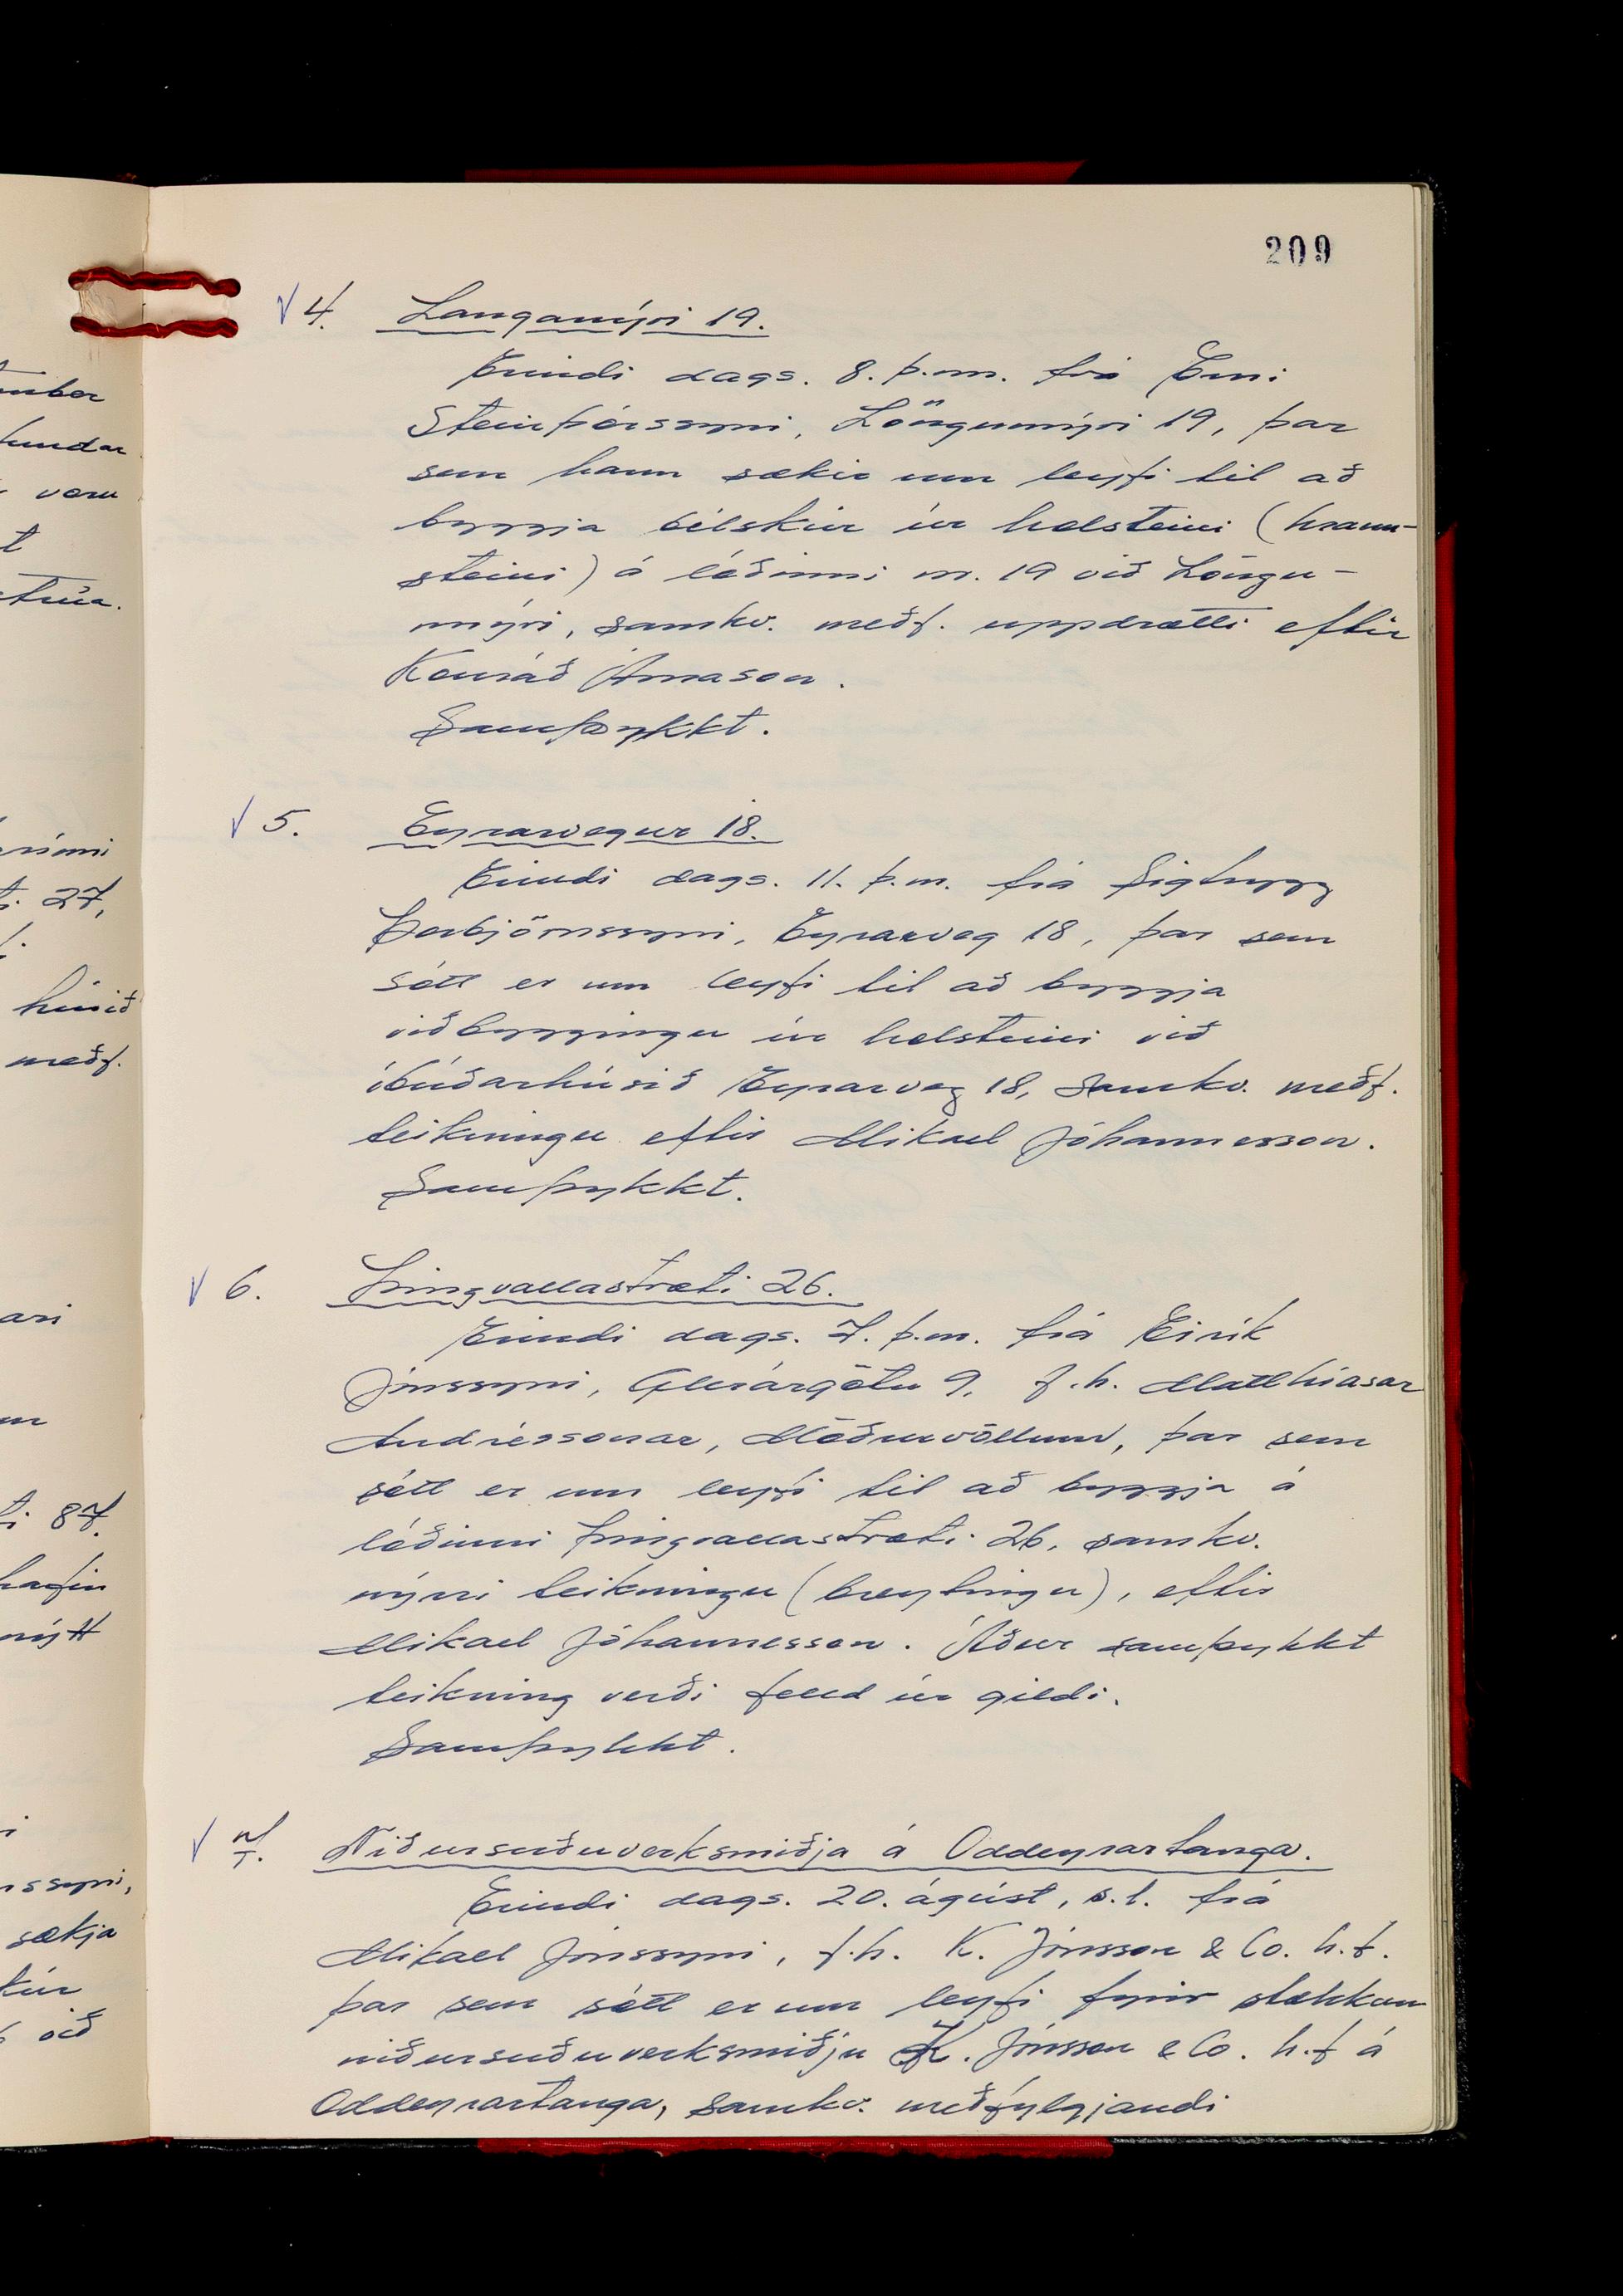 209
4. Langamýri 19.
Erindi dags. 8. þ.m. frá Erni
Steinþórssyni, Löngumýri 19, þar
sem hann sækir um leyfi til að
byggja bílskúr úr holsteini (hraun-
steini) á lóðinni nr. 19 við Löngu-
mýri, samkv. meðf. uppdrætti eftir
Konráð Árnason.
Samþykkt.
5. Eyrarvegur 18.
Erindi dags. 11. þ.m. frá Sigtrygg
Þorbjörnssyni, Eyrarveg 18, þar sem
sótt er um leyfi til að byggja
viðbyggingu úr holsteini við
íbúðarhúsið Eyrarveg 18, samkv. meðf.
teikningu eftir Mikael Jóhannesson.
Samþykkt.
6. Þingvallastræti 26.
Erindi dags. 7. þ.m. frá Eirík
Jónssyni, Glerárgötu 9, f.h. Matthíasar
Andréssonar, Möðruvöllum, þar sem
sótt er um leyfi til að byggja á
lóðinni Þingvallastræti 26, samkv.
nýrri teikningu (breytingu), eftir
Mikael Jóhannesson. Áður samþykkt
teikning verði felld úr gildi.
Samþykkt.
7. Niðursuðuverksmiðja á Oddeyrartanga.
Erindi dags. 20. ágúst, s.l. frá
Mikael Jónssyni, f.h. K. Jónsson & Co. h.f.
þar sem sótt er um leyfi fyrir stækkun
niðursuðuverksmiðju K. Jónsson & Co. h.f á
Oddeyrartanga, samkv. meðfylgjandi